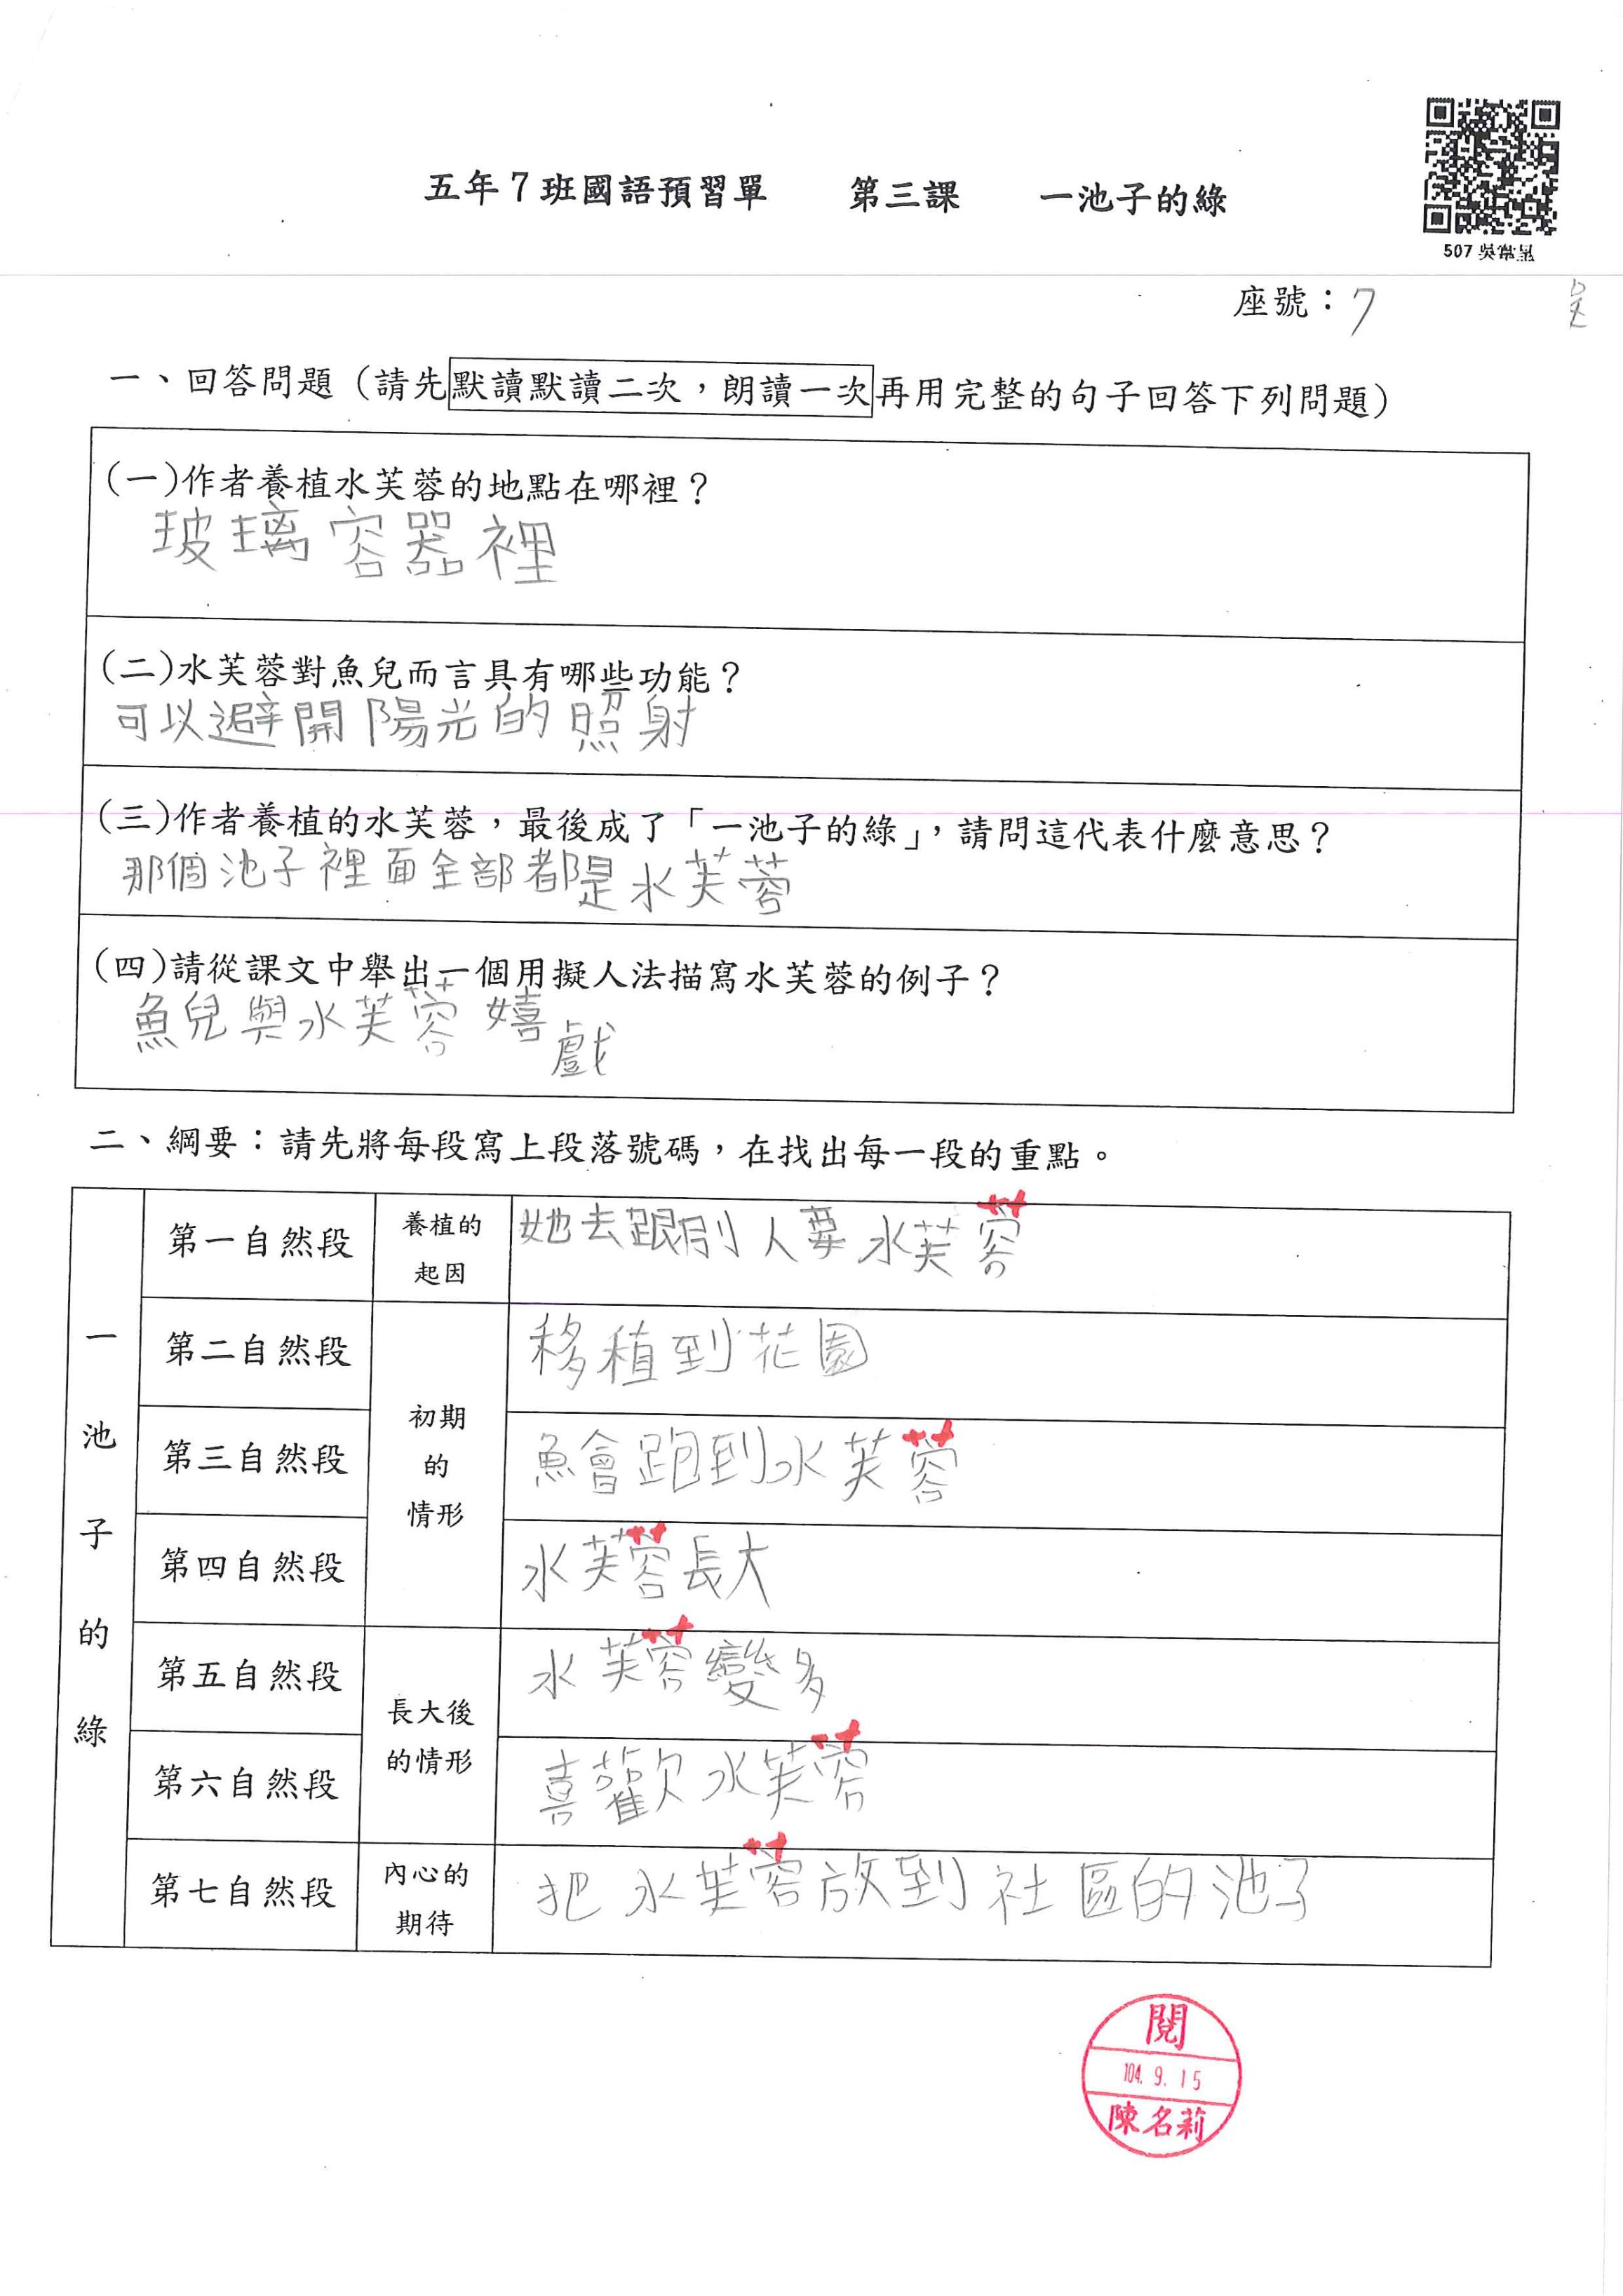 五年7班國語預習單 第三課 一池子的綠
507 吳
座號：7
一、回答問題（請先默讀默讀二次，朗讀一次再用完整的句子回答下列問題）
(一)作者養植水芙蓉的地點在哪裡？
玻璃容器裡
(二)水芙蓉對魚兒而言具有哪些功能？
可以避開陽光的照射
(三)作者養植的水芙蓉，最後成了「一池子的綠」，請問這代表什麼意思？
那個池子裡面全部都是水芙蓉
(四)請從課文中舉出一個用擬人法描寫水芙蓉的例子？
魚兒與水芙蓉嬉戲
二、綱要：請先將每段寫上段落號碼，在找出每一段的重點。
一池子的綠
第一自然段 養植的起因 她去跟別人要水芙蓉
第二自然段 初期的情形 移植到花園
第三自然段 魚會跑到水芙蓉
第四自然段 水芙蓉長大
第五自然段 長大後的情形 水芙蓉變多
第六自然段 喜歡水芙蓉
第七自然段 內心的期待 把水芙蓉放到社區的池子
閱
104.9.15
陳名莉